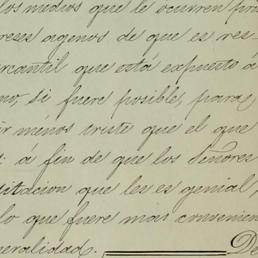 los medios que le ocurren pro
reses agenos de que es res
rcantil que está expuesto á
no, si fuere posible, para
ir ménos triste que el que
: á fin de que los Señores
sitacion que les es genial,
lo que fuere mas convenien
neralidad. De